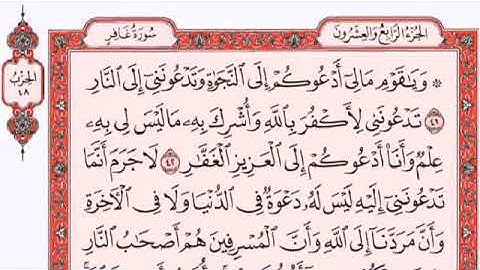 الجزء الرابع والعشرون
سورة غافر
الحزب
٤٨
۞ وَيَٰقَوْمِ مَالِىٓ أَدْعُوكُمْ إِلَى ٱلنَّجَوٰةِ وَتَدْعُونَنِىٓ إِلَى ٱلنَّارِ
٤١ تَدْعُونَنِى لِأَكْفُرَ بِٱللَّهِ وَأُشْرِكَ بِهِۦ مَا لَيْسَ لِى بِهِۦ
عِلْمٌ وَأَنَا۠ أَدْعُوكُمْ إِلَى ٱلْعَزِيزِ ٱلْغَفَّٰرِ ٤٢ لَا جَرَمَ أَنَّمَا
تَدْعُونَنِىٓ إِلَيْهِ لَيْسَ لَهُۥ دَعْوَةٌ فِى ٱلدُّنْيَا وَلَا فِى ٱلْءَاخِرَةِ
وَأَنَّ مَرَدَّنَآ إِلَى ٱللَّهِ وَأَنَّ ٱلْمُسْرِفِينَ هُمْ أَصْحَٰبُ ٱلنَّارِ